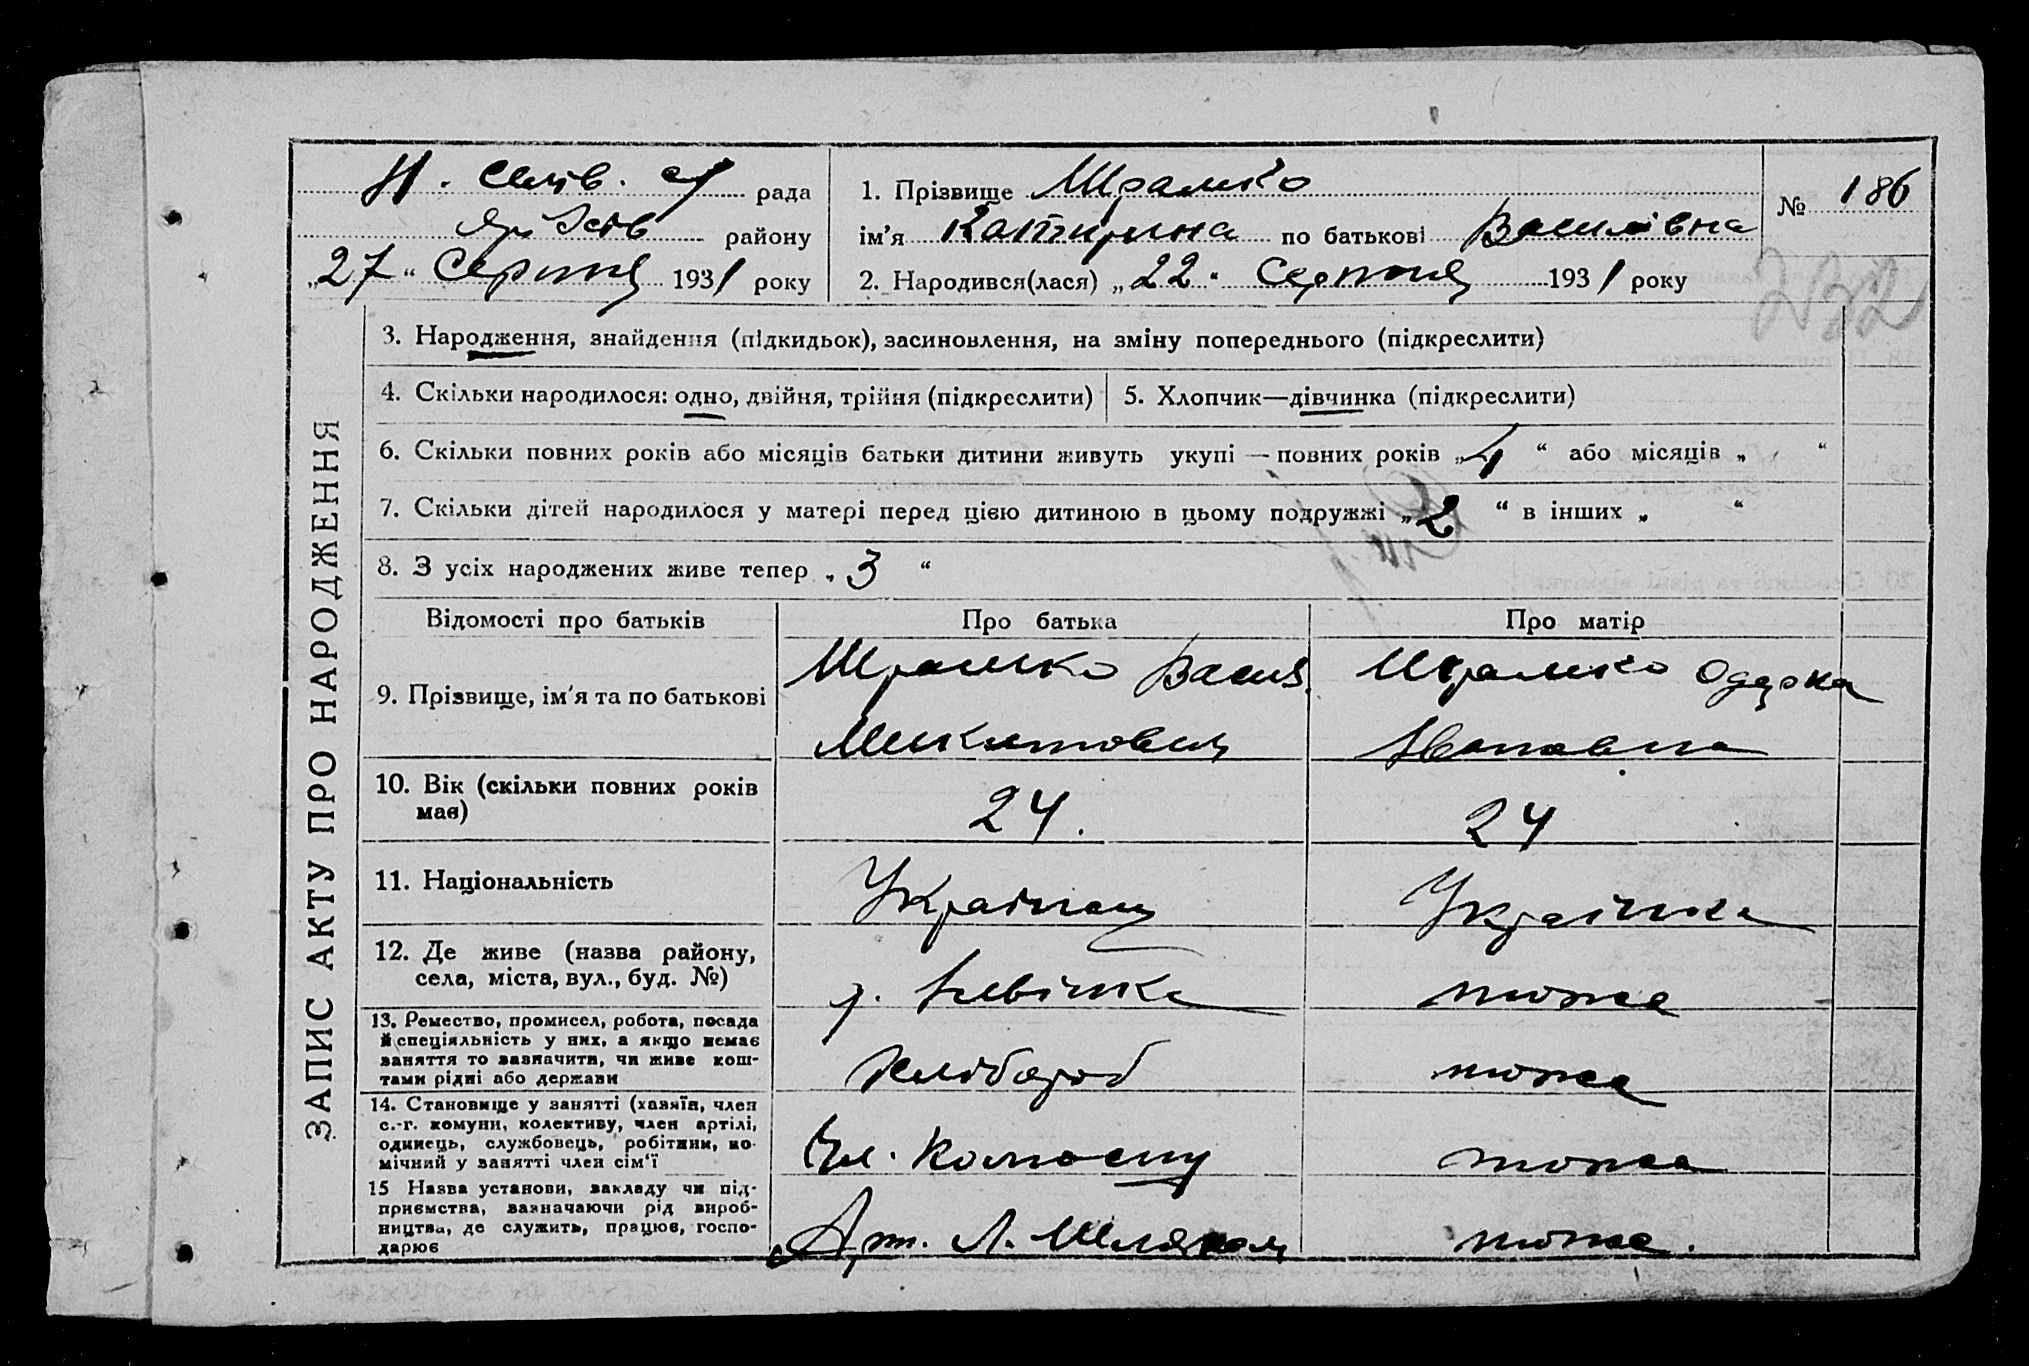 Н. Селів. с/ рада
району
„27“ Серпня 1931 року
1. Прізвище Шрамко
ім’я Катирина по батькові Василівна
2. Народився(лася) „22“ Серпня 1931 року
№ 186
232
ЗАПИС АКТУ ПРО НАРОДЖЕННЯ
3. Народження, знайдення (підкидьок), засиновлення, на зміну попереднього (підкреслити)
4. Скільки народилося: одно, двійня, трійня (підкреслити)
5. Хлопчик—дівчинка (підкреслити)
6. Скільки повних років або місяців батьки дитини живуть укупі — повних років „4“ або місяців „ “
7. Скільки дітей народилося у матері перед цією дитиною в цьому подружжі „2“ в інших „ “
8. З усіх народжених живе тепер „3“
Відомості про батьків
Про батька
Про матір
9. Прізвище, ім’я та по батькові
Шрамко Васил.
Микитович
Шрамко Одарка
Івановна
10. Вік (скільки повних років
має)
24.
24
11. Національність
Українец
Українка
12. Де живе (назва району,
села, міста, вул., буд. №)
тоже
13. Ремество, промисел, робота, посада
й спеціяльність у них, а якщо немає
заняття то зазначити, чи живе кош-
тами рідні або держави
Хлібороб
тоже
14. Становище у занятті (хазяїн, член
с.-г. комуни, колективу, член артілі,
одинець, службовець, робітник, по-
мічний у занятті член сім’ї
Чл. Колгоспу
тоже
15 Назва установи, закладу чи під-
приємства, зазначаючи рід вироб-
ництва, де служить, працює, госпо-
дарює
Арт. Л. Шляхом
тоже.